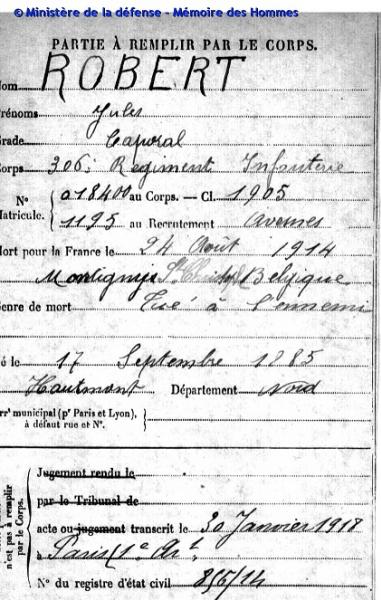 © Ministère de la défense - Mémoire des Hommes
PARTIE À REMPLIR PAR LE CORPS.
Nom ROBERT
Prénoms Jules
Grade Caporal
Corps 306e Regiment Infanterie
N° Matricule. { a 18400 au Corps. — Cl. 1905
1195 au Recrutement Avesnes
Mort pour la France le 24 Août 1914
Belgique
Genre de mort Tué à l'ennemi
Né le 17 Septembre 1885
Hautmont Département Nord
Arrt municipal (pr Paris et Lyon),
à défaut rue et N°.
Jugement rendu le
par le Tribunal de
acte ou jugement transcrit le 30 Janvier 1918
à Paris (1er Art)
N° du registre d'état civil 856/14
n'est pas à remplir
par le Corps.